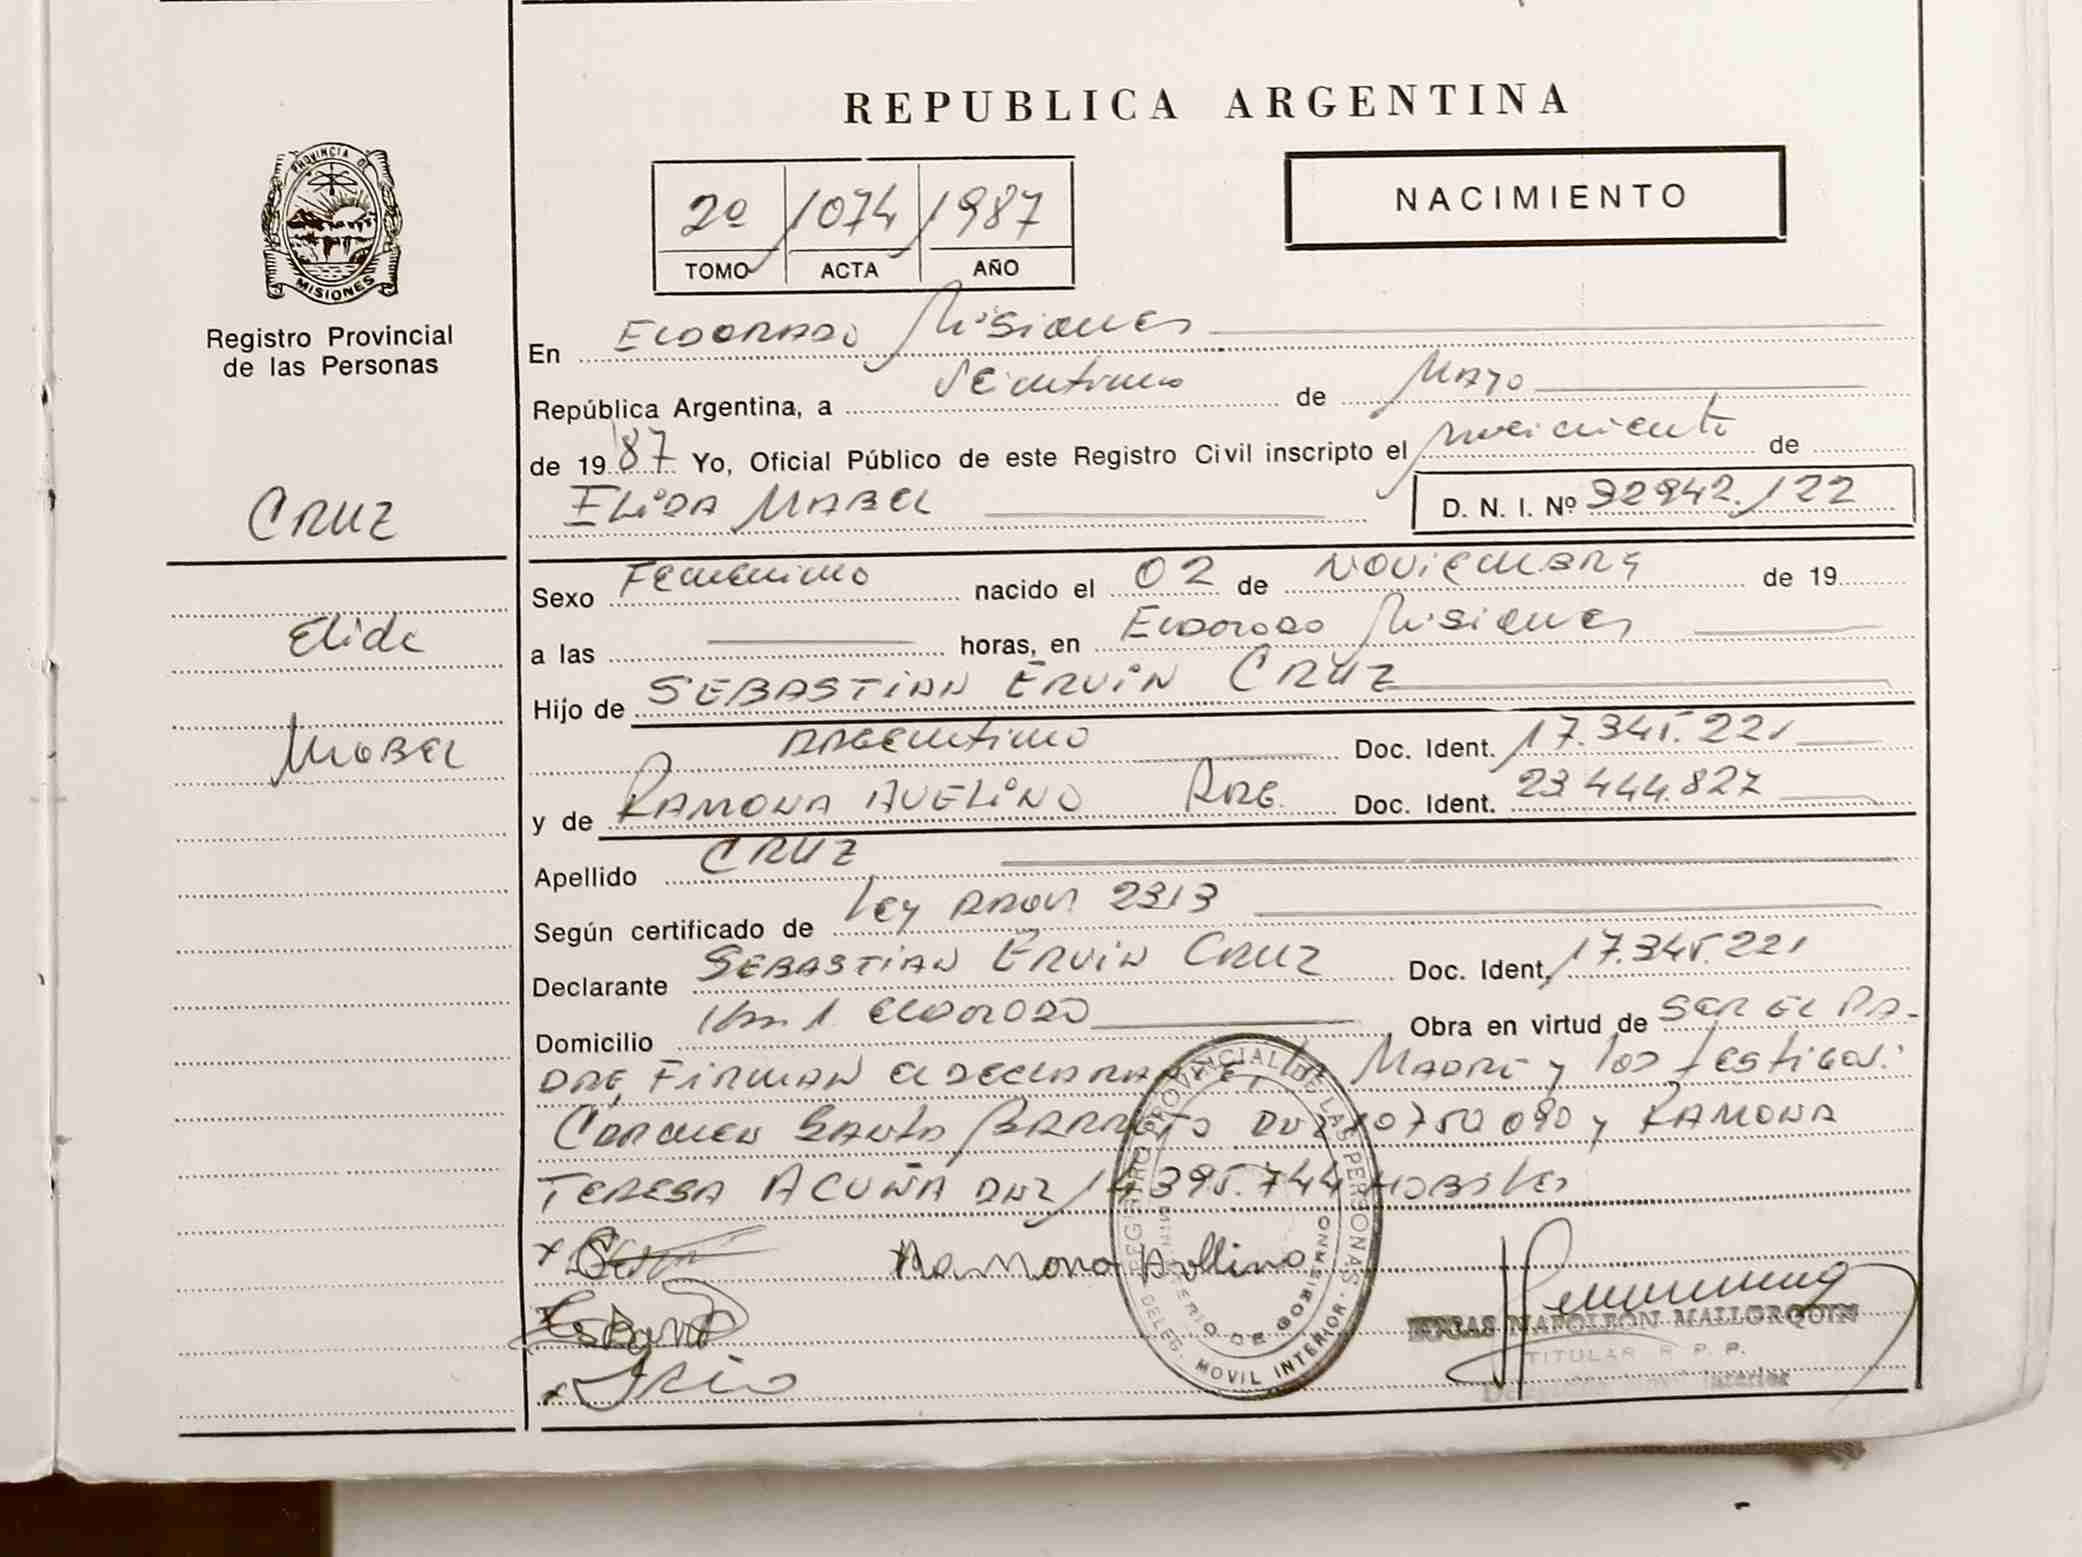 REPUBLICA ARGENTINA
PROVINCIA DE
MISIONES
Registro Provincial
de las Personas
2º 1074 1987
TOMO ACTA AÑO
NACIMIENTO
En Eldorado Misiones
República Argentina, a Veintiuno de Mayo
de 1987 Yo, Oficial Público de este Registro Civil inscripto el nacimiento de
ELIDA MABEL
D. N. I. Nº 92942.122
CRUZ
Elida
MABEL
Sexo Femenino nacido el 02 de NOVIEMBRE de 19
a las horas, en Eldorado Misiones
Hijo de SEBASTIAN ERVIN CRUZ
ARGENTINO Doc. Ident. 17.345.221
y de RAMONA AVELINO ARG. Doc. Ident. 23444.827
Apellido CRUZ
Según certificado de Ley 2313
Declarante SEBASTIAN ERVIN CRUZ Doc. Ident. 17.345.221
Domicilio Km 1 ELDORADO Obra en virtud de SER EL PA-
DRE, FIRMAN EL DECLARANTE, MADRE y los testigos:
CARMEN BARRETO 10750090 y RAMONA
TERESA ACUÑA 14395.744
Ramona Avellino
REGISTRO PROVINCIAL DE LAS PERSONAS
MINISTERIO DE GOBIERNO
DELEG. MOVIL INTERIOR
NAPOLEON MALLORQUIN
TITULAR R. P. P.
Interior